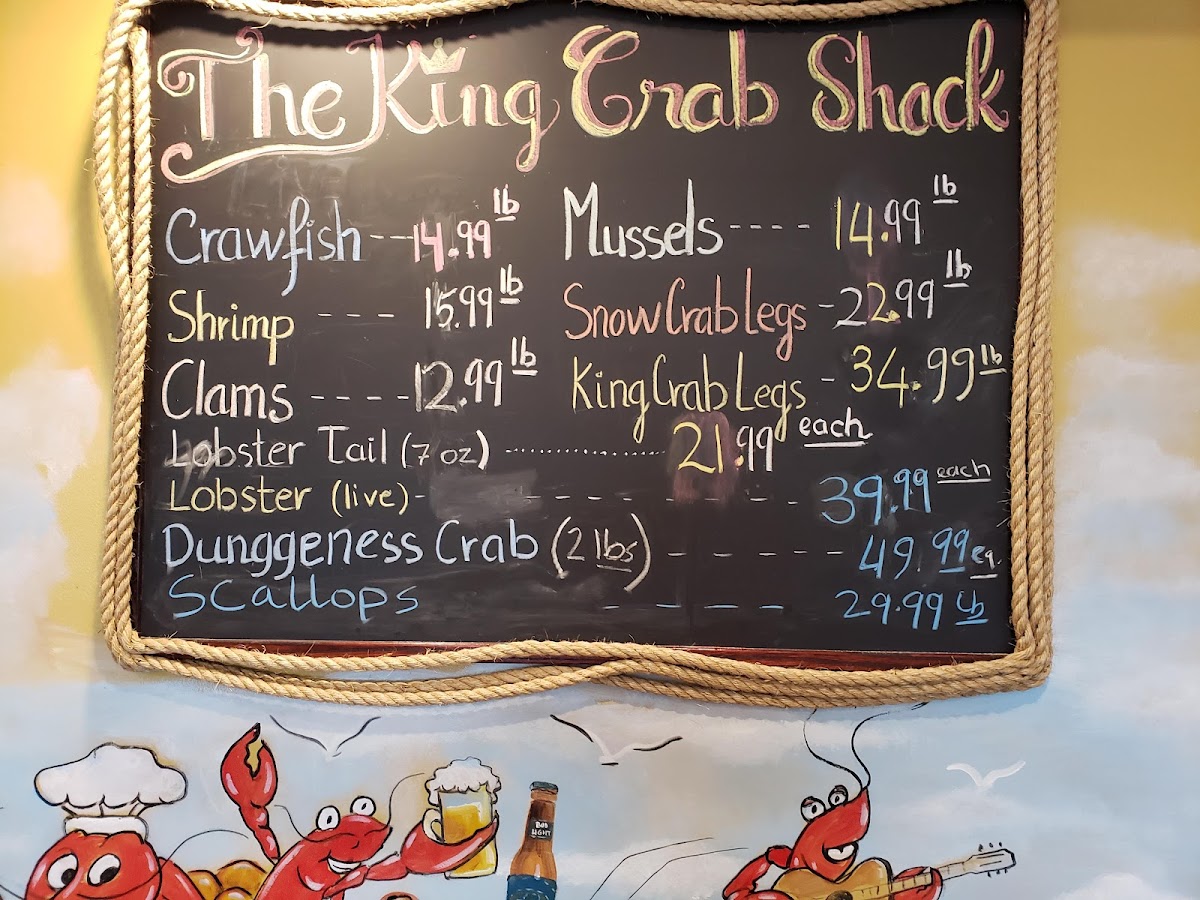 The King Crab Shack
Crawfish --- 14.99 lb
Mussels ---- 14.99 lb
Shrimp --- 15.99 lb
Snow Crab Legs - 22.99 lb
Clams ---- 12.99 lb
King Crab Legs - 34.99 lb
Lobster Tail (7 oz) .................... 21.99 each
Lobster (live) - - - - - - - - 39.99 each
Dunggeness Crab (2 lbs) - - - - - - 49.99 eq.
Scallops - - - - 29.99 lb
BUD LIGHT